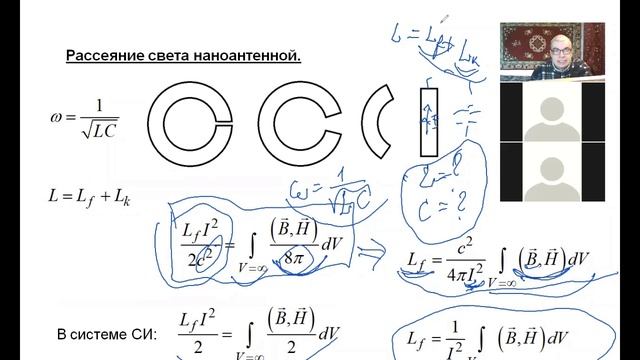 Рассеяние света наноантенной.
L = L_f + L_k
ω = 1/√(LC)
L = L_f + L_k
ω = 1/√(LC)
L = ?
C = ?
L_f I²/2c² = ∫_{V=∞} (B⃗, H⃗)/8π dV ⇒ L_f = c²/4πI² ∫_{V=∞} (B⃗, H⃗) dV
В системе СИ: L_f I²/2 = ∫_{V=∞} (B⃗, H⃗)/2 dV
L_f = 1/I² ∫ (B⃗, H⃗) dV